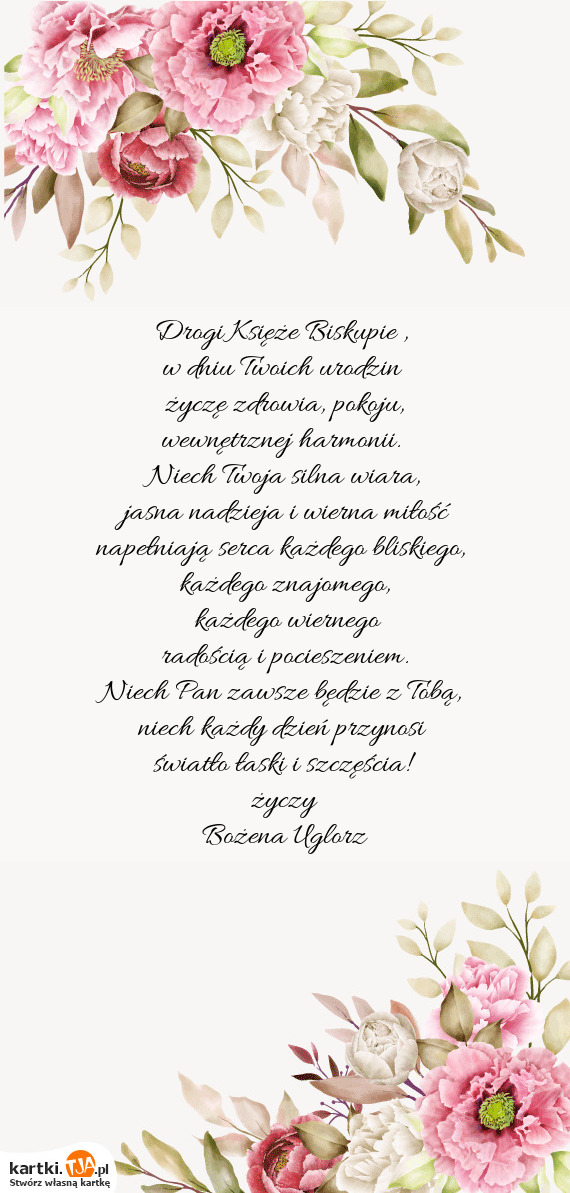 Drogi Księże Biskupie ,
w dniu Twoich urodzin
życzę zdrowia, pokoju,
wewnętrznej harmonii.
Niech Twoja silna wiara,
jasna nadzieja i wierna miłość
napełniają serca każdego bliskiego,
każdego znajomego,
każdego wiernego
radością i pocieszeniem.
Niech Pan zawsze będzie z Tobą,
niech każdy dzień przynosi
światło łaski i szczęścia!
życzy
Bożena Uglorz
kartki.TJA.pl
Stwórz własną kartkę